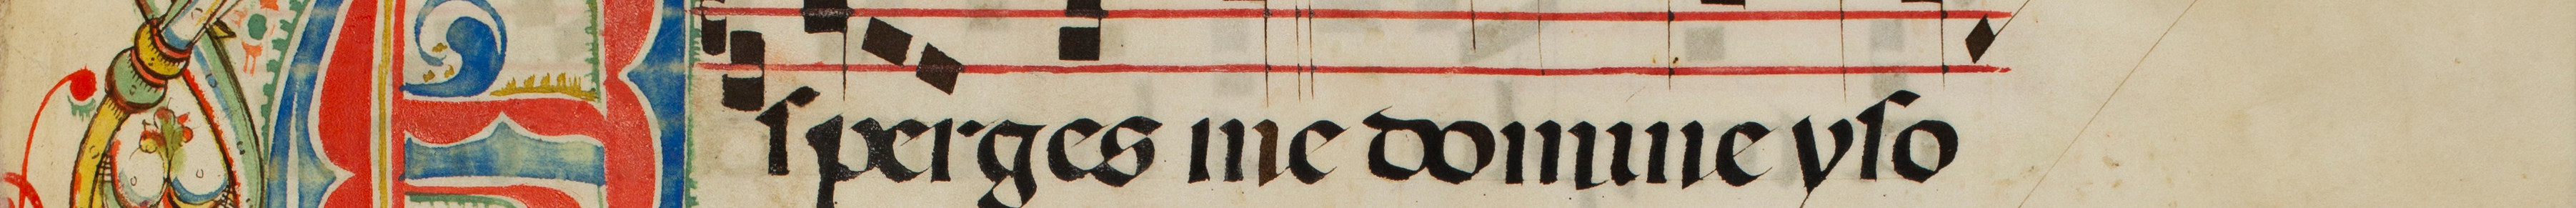 Asperges me domine yſo